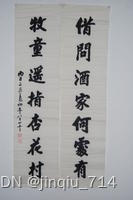 借問酒家何處有
牧童遥指杏花村
DN @jinqiu_714